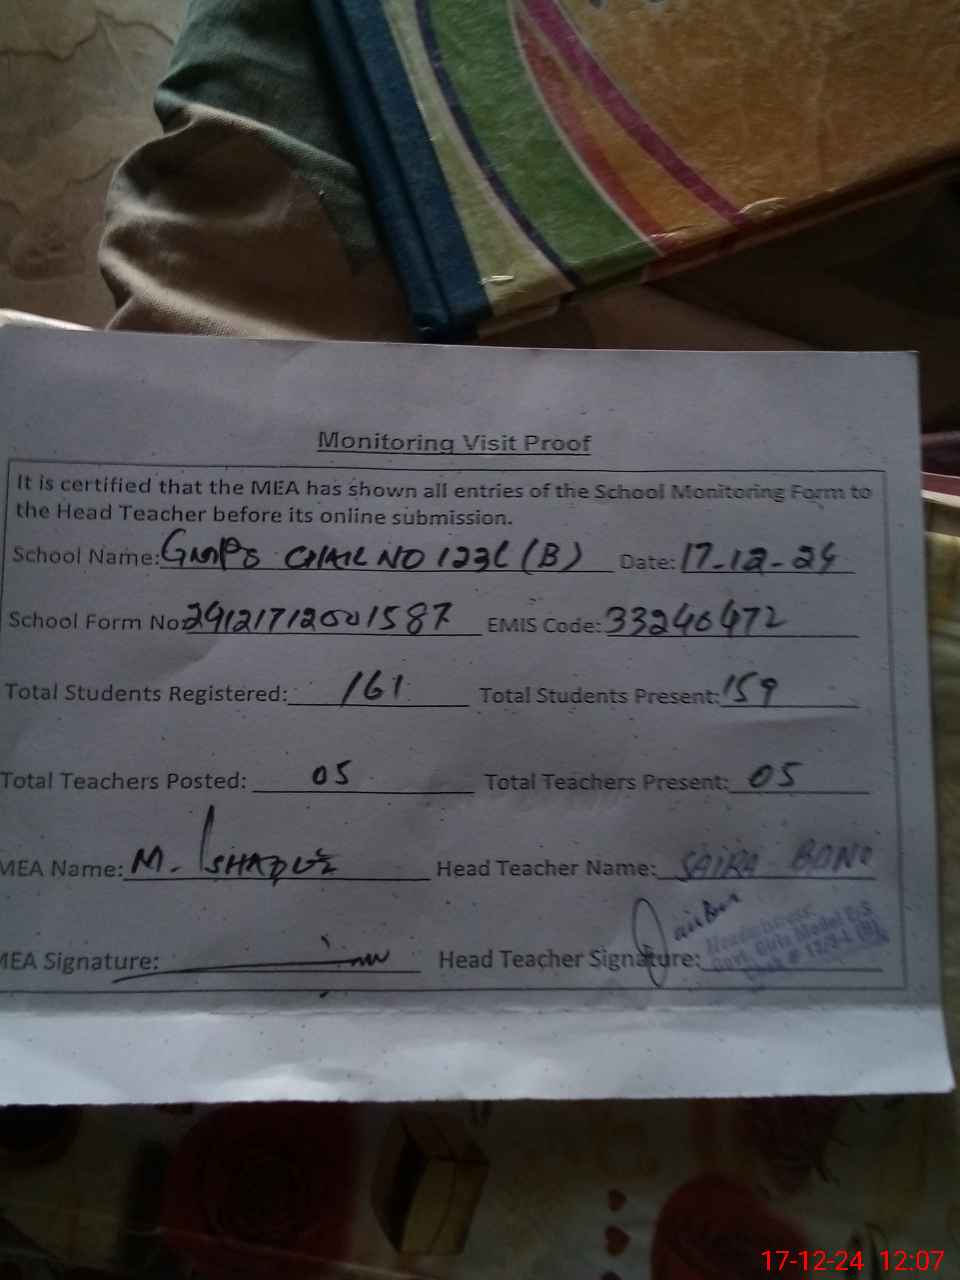 Monitoring Visit Proof
It is certified that the MEA has shown all entries of the School Monitoring Form to
the Head Teacher before its online submission.
School Name: GMPS CHAK NO 123L (B) Date: 17-12-24
School Form No: 24121712001587 EMIS Code: 33240472
Total Students Registered: 161 Total Students Present: 159
Total Teachers Posted: 05 Total Teachers Present: 05
MEA Name: M. Head Teacher Name: SAIRA BANO
MEA Signature: Head Teacher Signature:
Headmistress
Govt. Girls Model P/S
Chak # 12/3-L (B)
17-12-24 12:07